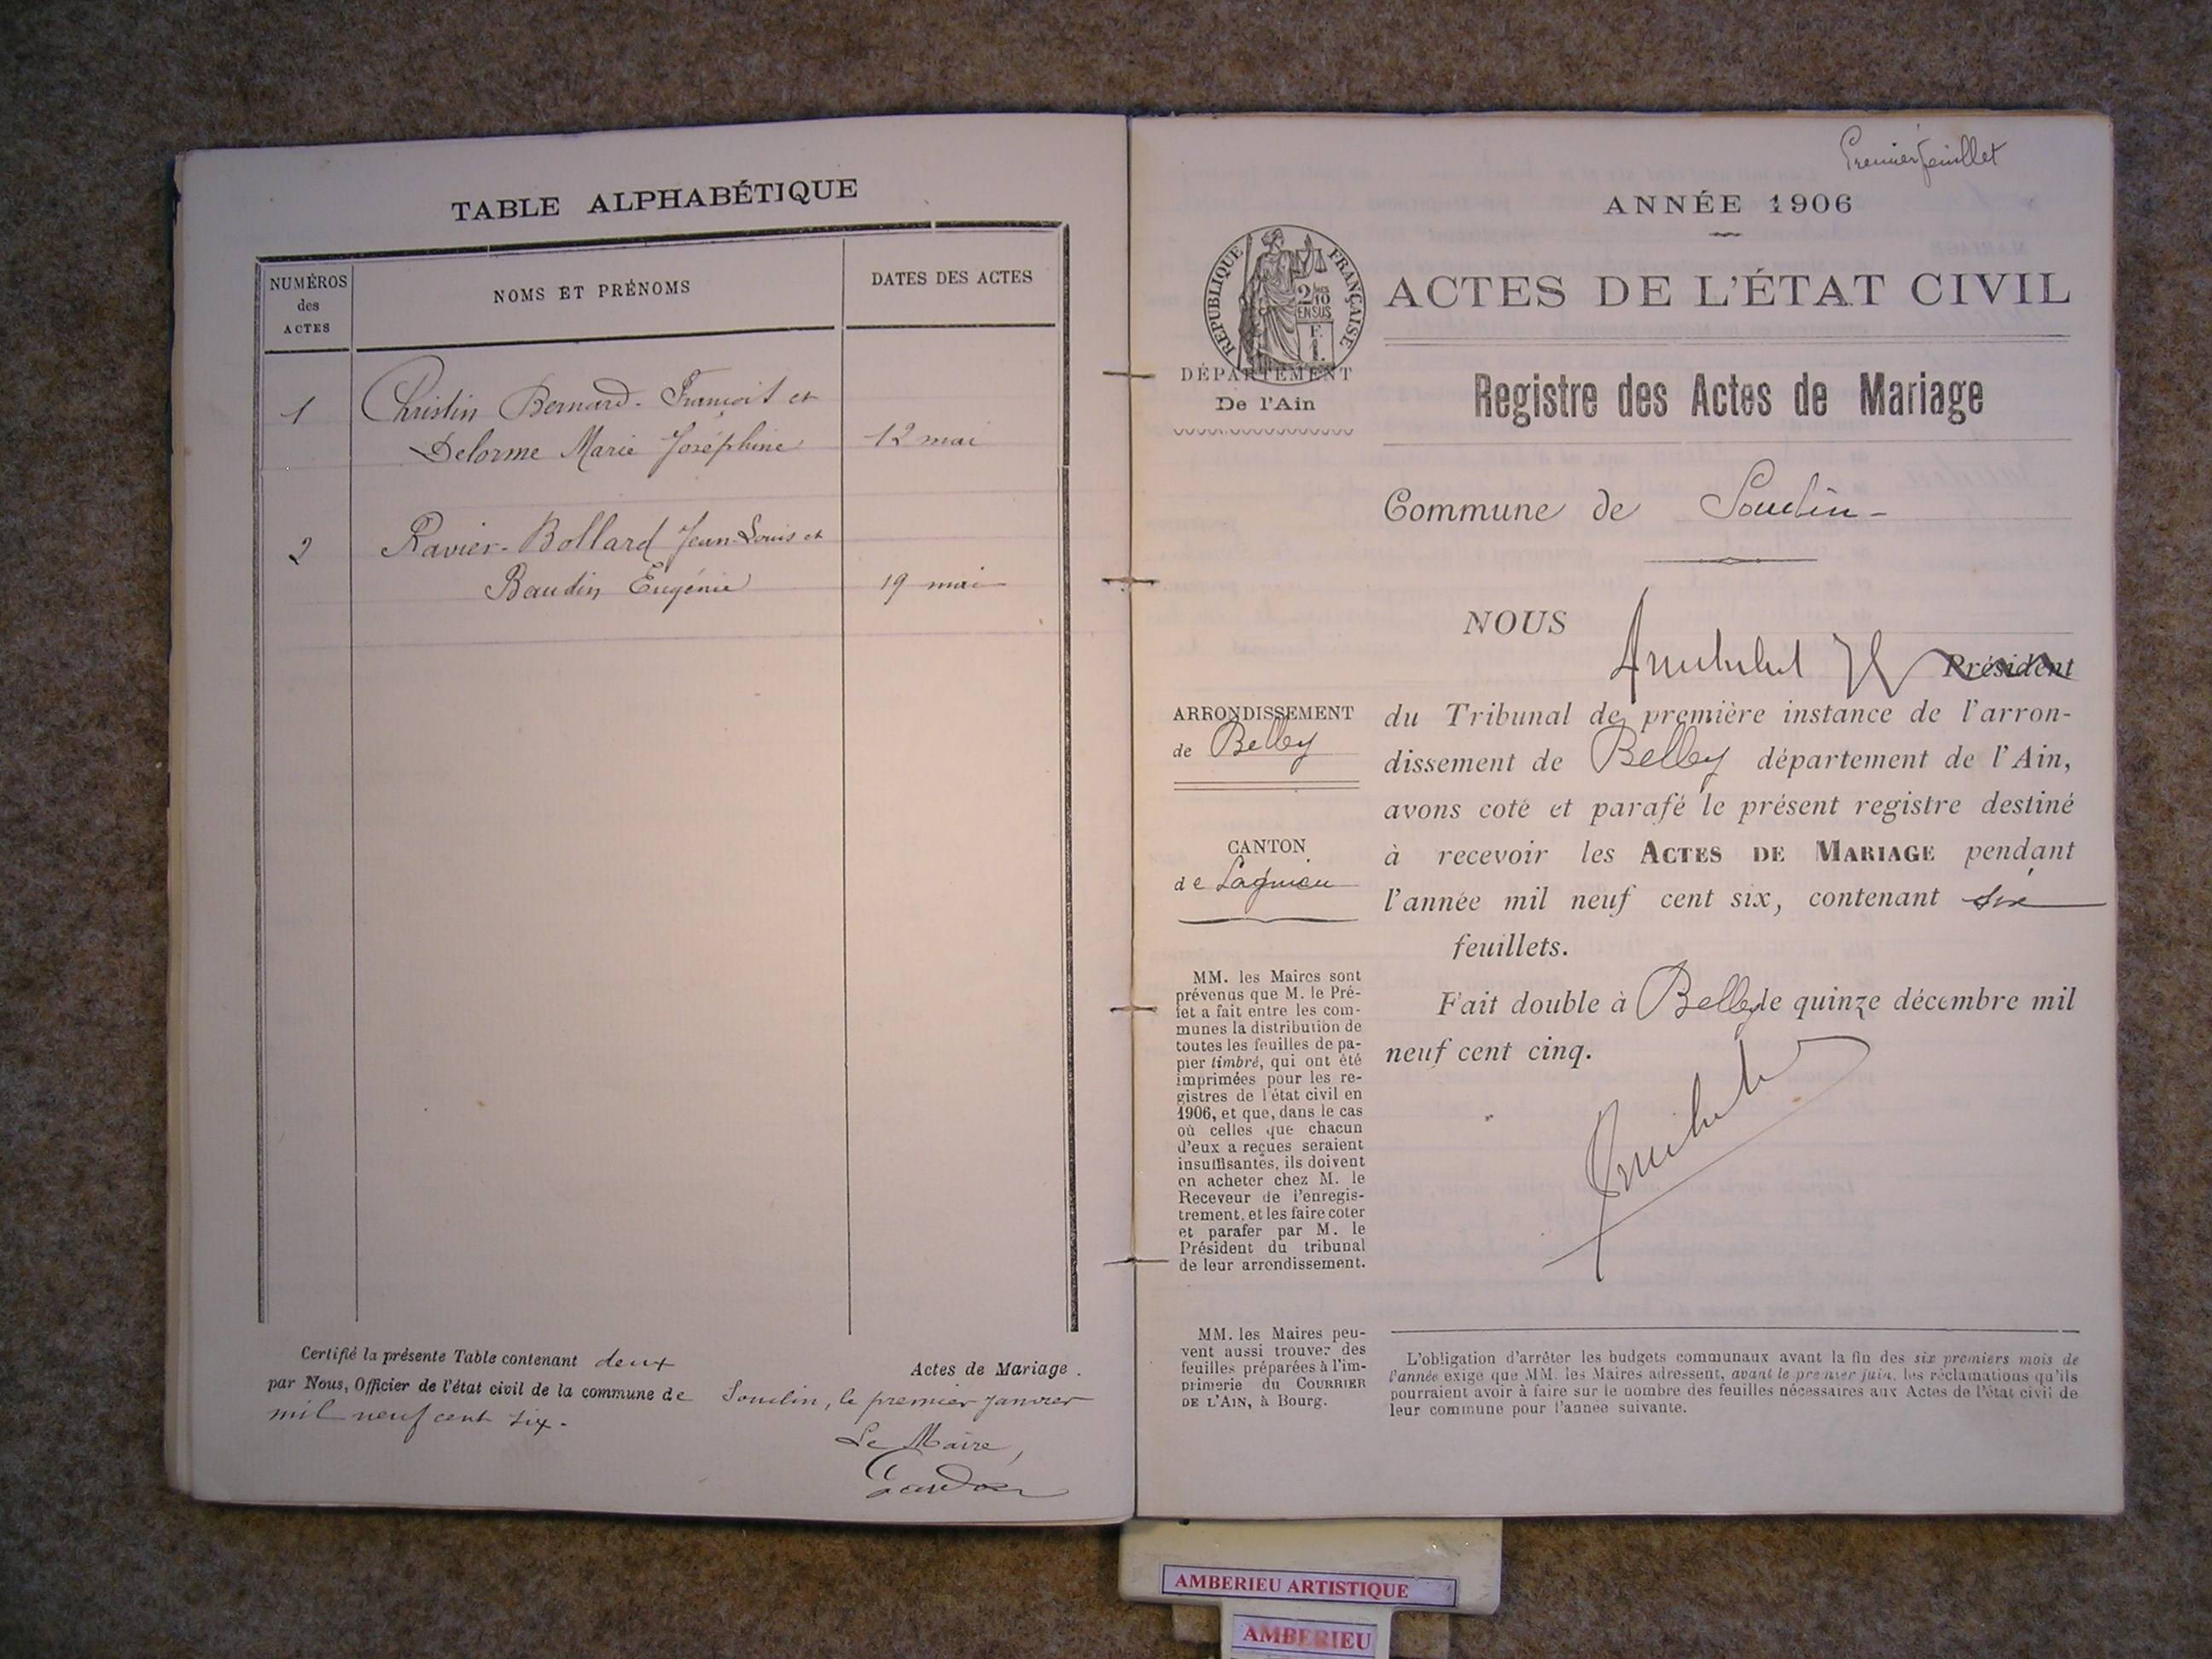 TABLE ALPHABÉTIQUE
NUMÉROS
des
ACTES
NOMS ET PRÉNOMS
DATES DES ACTES
1
Christin Bernard-François et
Delorme Marie Joséphine
12 mai
2
Ravier-Bollard Jean-Louis et
Baudin Eugénie
19 mai
Certifié la présente Table contenant deux Actes de Mariage.
par Nous, Officier de l'état civil de la commune de Souclin, le premier janvier
mil neuf cent six.
Le Maire,
Premier feuillet
ANNÉE 1906
RÉPUBLIQUE FRANÇAISE
2/10
EN SUS
F.
1.
ACTES DE L'ÉTAT CIVIL
DÉPARTEMENT
De l'Ain
Registre des Actes de Mariage
Commune de Souclin-
NOUS
Président
ARRONDISSEMENT
de Belley
du Tribunal de première instance de l'arron-
dissement de Belley département de l'Ain,
avons coté et parafé le présent registre destiné
à recevoir les ACTES DE MARIAGE pendant
l'année mil neuf cent six, contenant six
feuillets.
Fait double à Belley le quinze décembre mil
neuf cent cinq.
CANTON
de Lagnieu
MM. les Maires sont
prévenus que M. le Pré-
fet a fait entre les com-
munes la distribution de
toutes les feuilles de pa-
pier timbré, qui ont été
imprimées pour les re-
gistres de l'état civil en
1906, et que, dans le cas
où celles que chacun
d'eux a reçues seraient
insuffisantes, ils doivent
en acheter chez M. le
Receveur de l'enregis-
trement, et les faire coter
et parafer par M. le
Président du tribunal
de leur arrondissement.
MM. les Maires peu-
vent aussi trouver des
feuilles préparées à l'im-
primerie du COURRIER
DE L'AIN, à Bourg.
L'obligation d'arrêter les budgets communaux avant la fin des six premiers mois de
l'année exige que MM. les Maires adressent, avant le premier juin, les réclamations qu'ils
pourraient avoir à faire sur le nombre des feuilles nécessaires aux Actes de l'état civil de
leur commune pour l'année suivante.
AMBERIEU ARTISTIQUE
AMBERIEU